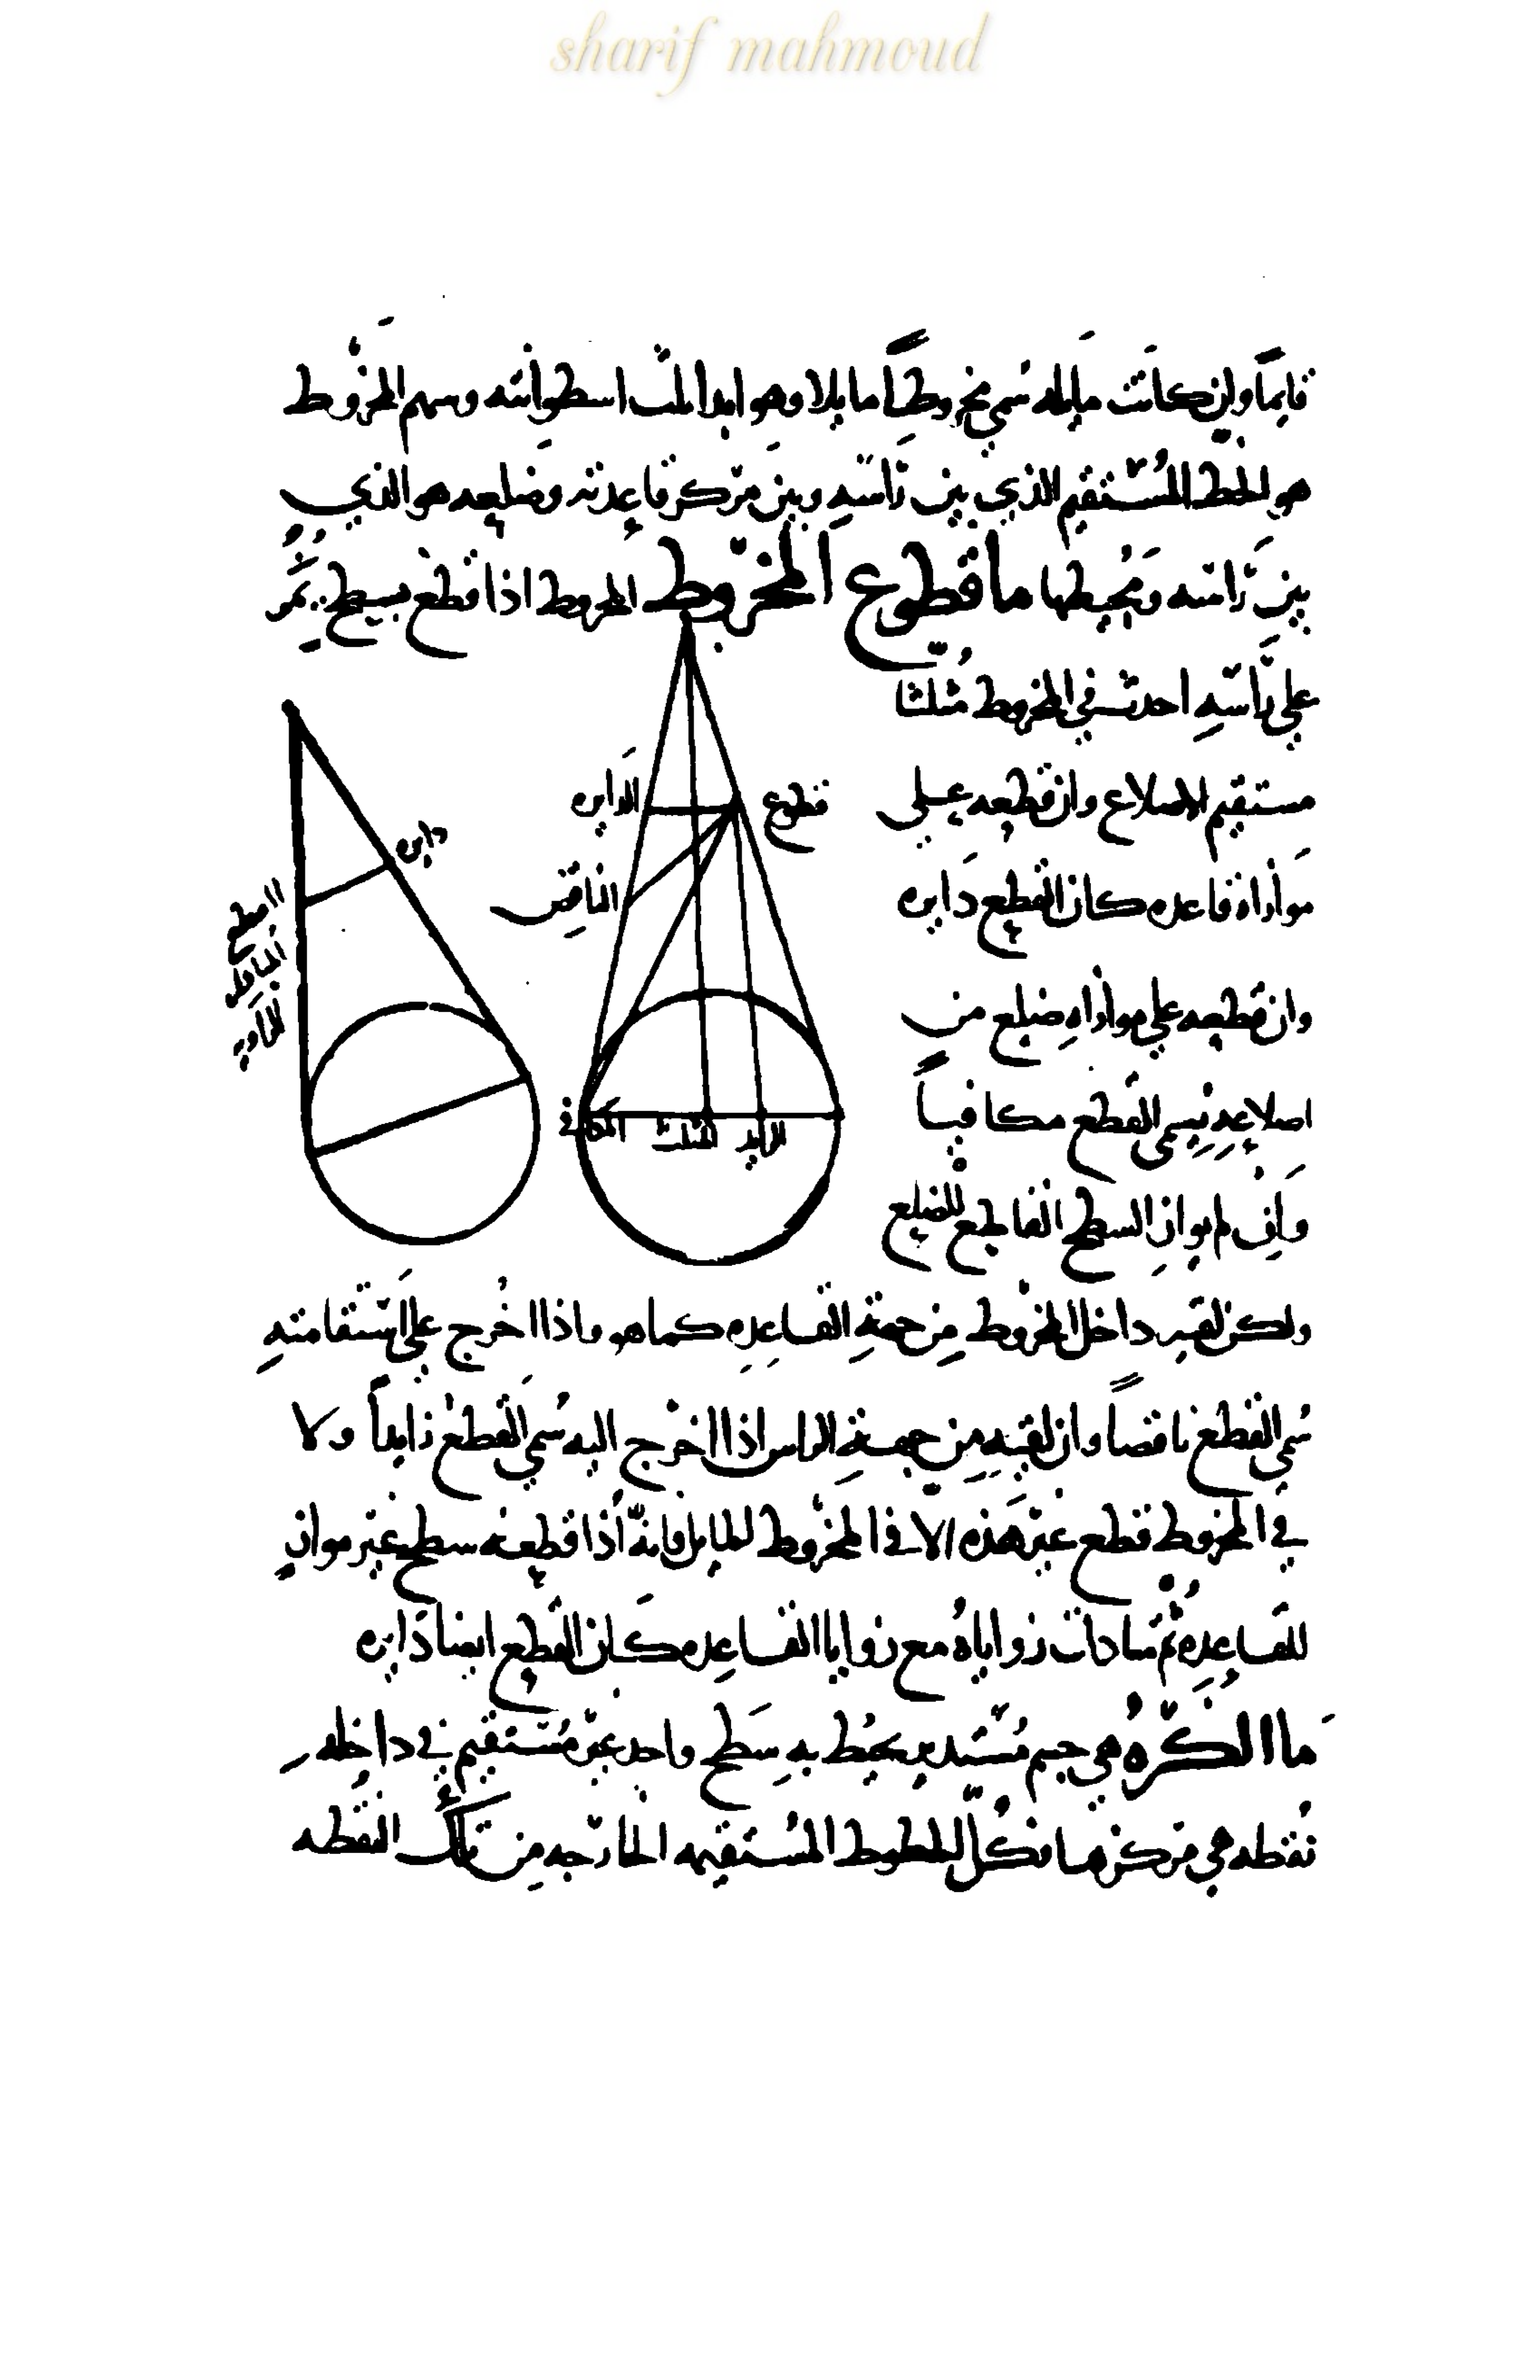 sharif mahmoud
قايماً وان كانت مايله سمي مخروطاً مايلا وهو ابدا ثلث اسطوانته وسهم المخروط
هو الخط المستقيم الذي بين راسه وبين مركز قاعدته وضلعه هو الذي
بين راسه ومحيطها ما قطوع المخروط المخروط اذا قطع بسيطح يمر
علي راسه احدث في المخروط مثلثا
مستقيم الاضلاع وان قطعه علي
موازاة قاعده كان القطع دايره
وان قطعه علي موازاه ضلع من
اضلاعه يسمى القطع مكافياً
وان لم يوازِ السطح القاطع للضلع
ولكن لقيه داخل المخروط من جهة القاعده كما هو واذا اخرج علي استقامته
سمي القطع ناقصاً وان لقيه من جهة الراس اذا اخرج اليه سمي القطع زايداً ولا
في المخروط قطع غير هذه الا في المخروط المايل فانه اذا قطعه سطح غير موازٍ
للقاعده ثم تساوت زواياه مع زوايا القاعده كان القطع ايضا دايره
ما الكره هي جسم مستدير يحيط به سطح واحد غير مستقيم في داخله
نقطه هي مركزها وكل الخطوط المستقيمه الخارجه من تلك النقطه
الدايره
قطوع
الناقص
المكافي المثلث الزايد
دايره